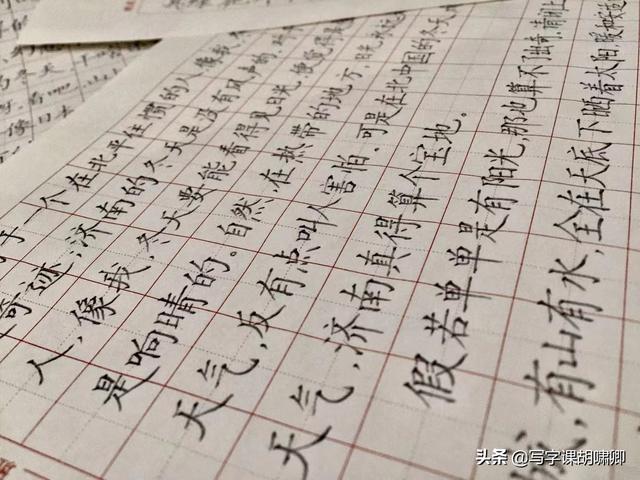 于一个在北平住惯的人,像我,
奇迹;济南的冬天是没有风声的。对
人,像我,冬天要能看得见日光,便觉得是
是响晴的。自然,在热带的地方,日光永远
天气,反有点叫人害怕。可是在北中国的冬天,
天气,济南真得算个宝地。
假若单单是有阳光,那也算不了出奇,请闭上
城,有山有水,全在天底下晒着太阳,暖和安适
头条 @写字课胡啸卿